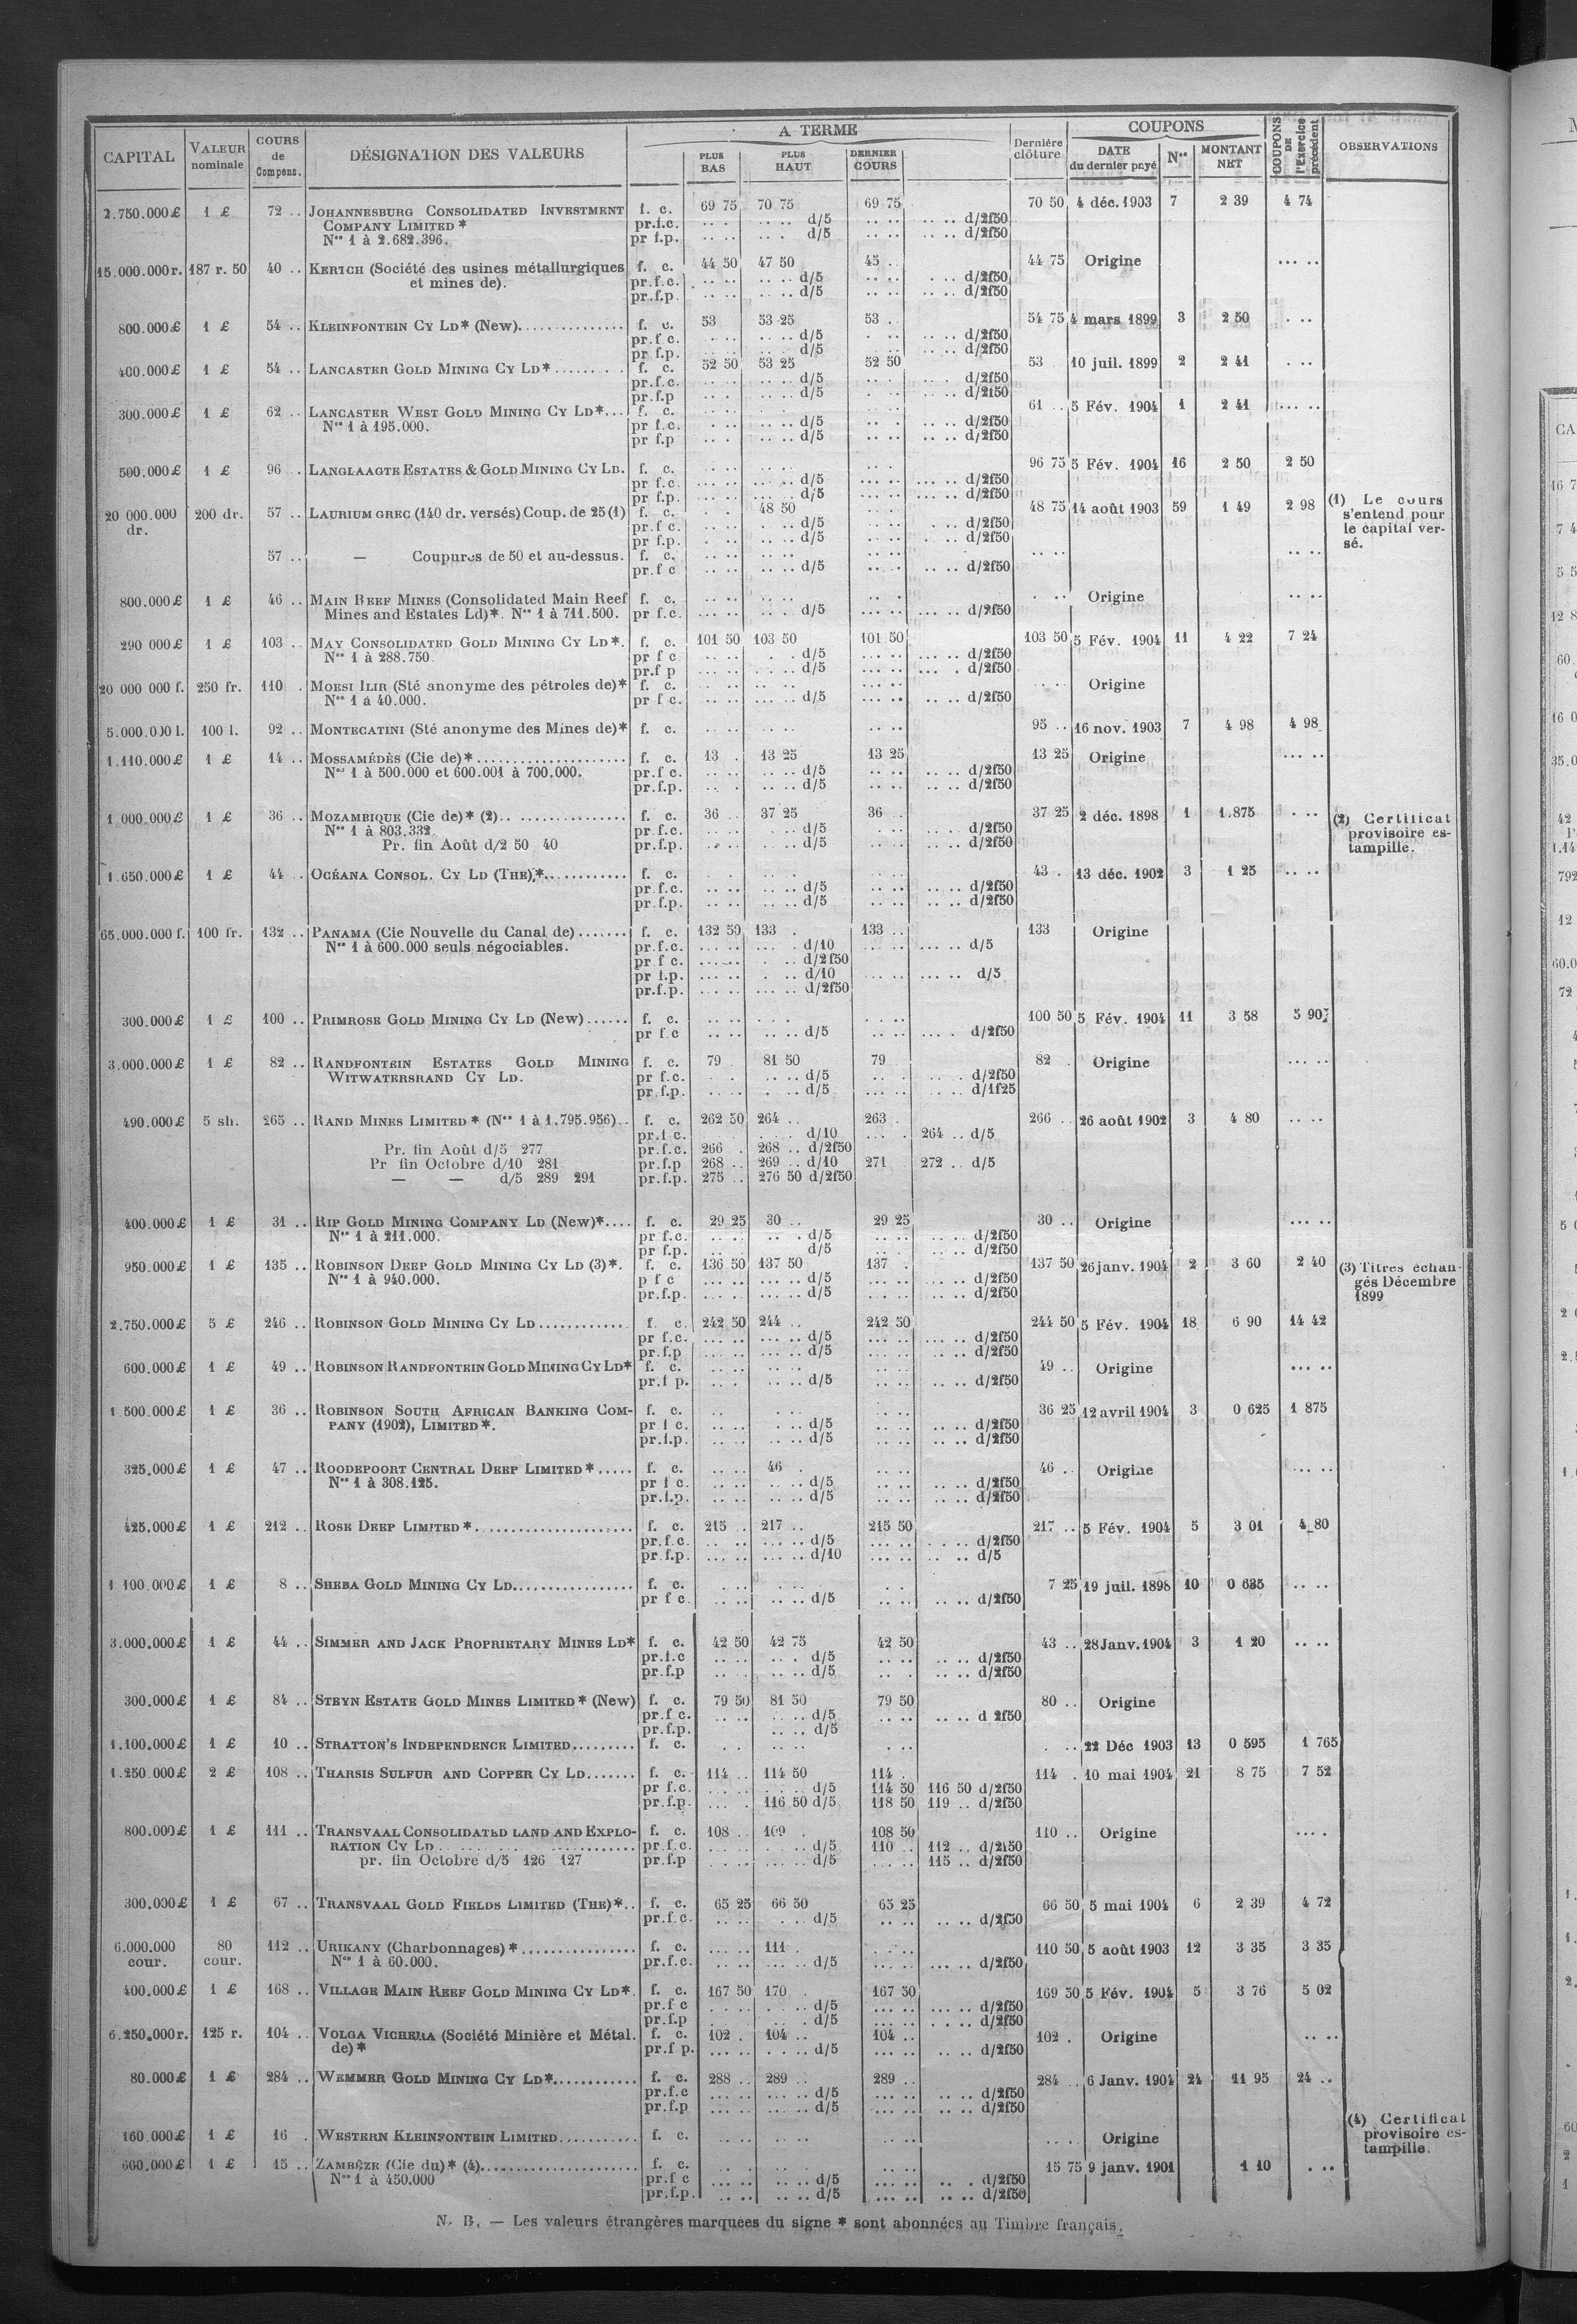 CAPITAL VALEUR nominale COURS de Compens. DÉSIGNATION DES VALEURS A TERME PLUS BAS PLUS HAUT DERNIER COURS Dernière clôture COUPONS DATE du dernier payé Nos MONTANT NET COUPONS DE l'Exercice précédent OBSERVATIONS
2.750.000£ 1 £ 72 .. JOHANNESBURG CONSOLIDATED INVESTMENT f. c. 69 75 70 75 69 75 70 50 4 déc. 1903 7 2 39 4 74
COMPANY LIMITED * pr.f.c. d/5 d/2f50
Nos 1 à 2.682.396. pr f.p. d/5 d/2f50
15.000.000r. 187 r. 50 40 .. KERTCH (Société des usines métallurgiques f. c. 44 50 47 50 45 .. 44 75 Origine
et mines de). pr.f.c. d/5 d/2f50
pr.f.p. d/5 d/2f50
800.000£ 1 £ 54 .. KLEINFONTEIN CY LD* (New) f. c. 53 53 25 53 .. 54 75 4 mars 1899 3 2 50
pr.f c. d/5 d/2f50
pr f.p. d/5 d/2f50
400.000£ 1 £ 54 .. LANCASTER GOLD MINING CY LD* f. c. 52 50 53 25 52 50 53 10 juil. 1899 2 2 41
pr.f.c. d/5 d/2f50
pr.f.p d/5 d/2f50
300.000£ 1 £ 62 .. LANCASTER WEST GOLD MINING CY LD* f. c. 61 .. 5 Fév. 1904 1 2 41
Nos 1 à 195.000. pr f.c. d/5 d/2f50
pr f.p d/5 d/2f50
500.000£ 1 £ 96 .. LANGLAAGTE ESTATES & GOLD MINING CY LD. f. c. 96 75 5 Fév. 1904 16 2 50 2 50
pr f.c. d/5 d/2f50
pr f.p. d/5 d/2f50
20 000.000 dr. 200 dr. 57 .. LAURIUM GREC (140 dr. versés) Coup. de 25 (1) f. c. 48 50 48 75 14 août 1903 59 1 49 2 98 (1) Le cours s'entend pour le capital versé.
pr.f c. d/5 d/2f50
pr f.p. d/5 d/2f50
57 .. — Coupures de 50 et au-dessus. f. c.
pr.f c d/5 d/2f50
800.000£ 1 £ 46 .. MAIN REEF MINES (Consolidated Main Reef f. c. Origine
Mines and Estates Ld)*. Nos 1 à 711.500. pr f.c. d/5 d/2f50
290 000£ 1 £ 103 .. MAY CONSOLIDATED GOLD MINING CY LD*. f. c. 101 50 103 50 101 50 103 50 5 Fév. 1904 11 4 22 7 24
Nos 1 à 288.750. pr f c d/5 d/2f50
pr.f p d/5 d/2f50
20 000 000 f. 250 fr. 110 . MOESI ILIR (Sté anonyme des pétroles de)* f. c. Origine
Nos 1 à 40.000. pr f c. d/5 d/2f50
5.000.000 l. 100 l. 92 .. MONTECATINI (Sté anonyme des Mines de)* f. c. 95 .. 16 nov. 1903 7 4 98 4 98
1.110.000£ 1 £ 14 .. MOSSAMÉDÈS (Cie de)* f. c. 13 . 13 25 13 25 13 25 Origine
Nos 1 à 500.000 et 600.001 à 700.000. pr.f c. d/5 d/2f50
pr.f.p. d/5 d/2f50
1 000.000£ 1 £ 36 .. MOZAMBIQUE (Cie de)* (2) f. c. 36 .. 37 25 36 .. 37 25 2 déc. 1898 1 1.875 (2) Certificat provisoire estampille.
Nos 1 à 803.332. pr.f.c. d/5 d/2f50
Pr. fin Août d/2 50 40 pr.f.p. d/5 d/2f50
1.650.000£ 1 £ 44 . OCÉANA CONSOL. CY LD (THE)* f. c. 43 . 13 déc. 1902 3 1 25
pr.f.c. d/5 d/2f50
pr.f.p. d/5 d/2f50
65.000.000 f. 100 fr. 132 .. PANAMA (Cie Nouvelle du Canal de) f. c. 132 50 133 . 133 .. 133 Origine
Nos 1 à 600.000 seuls négociables. pr.f.c. d/10 d/5
pr f c. d/2f50
pr f.p. d/10 d/5
pr.f.p. d/2f50
300.000£ 1 £ 100 .. PRIMROSE GOLD MINING CY LD (New) f. c. 100 50 5 Fév. 1904 11 3 58 5 90
pr f.c d/5 d/2f50
3.000.000£ 1 £ 82 .. RANDFONTEIN ESTATES GOLD MINING f. c. 79 . 81 50 79 82 . Origine
WITWATERSRAND CY LD. pr f.c. d/5 d/2f50
pr.f.p. d/5 d/1f25
490.000£ 5 sh. 265 .. RAND MINES LIMITED * (Nos 1 à 1.795.956) f. c. 262 50 264 .. 263 . 266 .. 26 août 1902 3 4 80
pr.f c. d/10 264 .. d/5
Pr. fin Août d/5 277 pr.f.c. 266 . 268 .. d/2f50
Pr fin Octobre d/10 281 pr.f.p 268 .. 269 .. d/10 271 272 .. d/5
— — d/5 289 291 pr.f.p. 275 .. 276 50 d/2f50
400.000£ 1 £ 31 .. RIP GOLD MINING COMPANY LD (New)* f. c. 29 25 30 .. 29 25 30 .. Origine
Nos 1 à 211.000. pr f.c. d/5 d/2f50
pr f.p. d/5 d/2f50
950.000£ 1 £ 135 .. ROBINSON DEEP GOLD MINING CY LD (3)*. f. c. 136 50 137 50 137 . 137 50 26 janv. 1904 2 3 60 2 40 (3) Titres échangés Décembre 1899
Nos 1 à 940.000. p f c d/5 d/2f50
pr.f.p. d/5 d/2f50
2.750.000£ 5 £ 246 .. ROBINSON GOLD MINING CY LD f. c. 242 50 244 .. 242 50 244 50 5 Fév. 1904 18 6 90 14 42
pr f.c. d/5 d/2f50
pr.f.p d/5 d/2f50
600.000£ 1 £ 49 .. ROBINSON RANDFONTEIN GOLD MINING CY LD* f. c. 49 .. Origine
pr.f p. d/5 d/2f50
1 500.000£ 1 £ 36 .. ROBINSON SOUTH AFRICAN BANKING COM- f. c. 36 25 12 avril 1904 3 0 625 1 875
PANY (1902), LIMITED*. pr f c. d/5 d/2f50
pr.f.p. d/5 d/2f50
325.000£ 1 £ 47 .. ROODEPOORT CENTRAL DEEP LIMITED* f. c. 46 . 46 .. Origine
Nos 1 à 308.125. pr f c. d/5 d/2f50
pr.f.p. d/5 d/2f50
425.000£ 1 £ 212 .. ROSE DEEP LIMITED* f. c. 215 .. 217 .. 215 50 217 .. 5 Fév. 1904 5 3 01 4 80
pr.f.c. d/5 d/2f50
pr.f.p. d/10 d/5
1 100.000£ 1 £ 8 .. SHEBA GOLD MINING CY LD f. c. 7 25 19 juil. 1898 10 0 635
pr f c. d/5 d/2f50
3.000.000£ 1 £ 44 .. SIMMER AND JACK PROPRIETARY MINES LD* f. c. 42 50 42 75 42 50 43 .. 28 Janv. 1904 3 1 20
pr.f.c d/5 d/2f50
pr.f.p d/5 d/2f50
300.000£ 1 £ 84 .. STEYN ESTATE GOLD MINES LIMITED* (New) f. c. 79 50 81 50 79 50 80 .. Origine
pr.f c. d/5 d 2f50
pr.f.p. d/5
1.100.000£ 1 £ 10 .. STRATTON'S INDEPENDENCE LIMITED f. c. 22 Déc 1903 13 0 595 1 765
1.250.000£ 2 £ 108 .. THARSIS SULFUR AND COPPER CY LD f. c. 114 .. 114 50 114 . 114 . 10 mai 1904 21 8 75 7 52
pr f.c. d/5 114 50 116 50 d/2f50
pr.f.p. 116 50 d/5 118 50 119 .. d/2f50
800.000£ 1 £ 111 .. TRANSVAAL CONSOLIDATED LAND AND EXPLO- f. c. 108 .. 109 . 108 50 110 .. Origine
RATION CY LD pr.f.c. d/5 110 .. 112 .. d/2f50
pr. fin Octobre d/5 126 127 pr.f.p d/5 115 .. d/2f50
300.000£ 1 £ 67 .. TRANSVAAL GOLD FIELDS LIMITED (THE)* f. c. 65 25 66 50 65 25 66 50 5 mai 1904 6 2 39 4 72
pr.f.c. d/5 d/2f50
6.000.000 cour. 80 cour. 112 .. URIKANY (Charbonnages) * f. c. 111 . 110 50 5 août 1903 12 3 35 3 35
Nos 1 à 60.000. pr.f.c. d/5 d/2f50
400.000£ 1 £ 168 .. VILLAGE MAIN REEF GOLD MINING CY LD* f. c. 167 50 170 . 167 50 169 50 5 Fév. 1904 5 3 76 5 02
pr.f c d/5 d/2f50
pr.f.p d/5 d/2f50
6.250.000r. 125 r. 104 .. VOLGA VICHERA (Société Minière et Métal. f. c. 102 . 104 .. 104 .. 102 . Origine
de)* pr.f p. d/5 d/2f50
80.000£ 1 £ 284 .. WEMMER GOLD MINING CY LD* f. c. 288 .. 289 .. 289 .. 284 .. 6 Janv. 1904 24 11 95 24 ..
pr.f.c d/5 d/2f50
pr.f.p d/5 d/2f50
160.000£ 1 £ 16 . WESTERN KLEINFONTEIN LIMITED f. c. Origine (4) Certificat provisoire estampille.
600.000£ 1 £ 15 .. ZAMBÈZE (Cie du)* (4) f. c. 15 75 9 janv. 1901 1 10
Nos 1 à 450.000 pr.f c d/5 d/2f50
pr.f.p. d/5 d/2f50
N. B. — Les valeurs étrangères marquees du signe * sont abonnées au Timbre français.